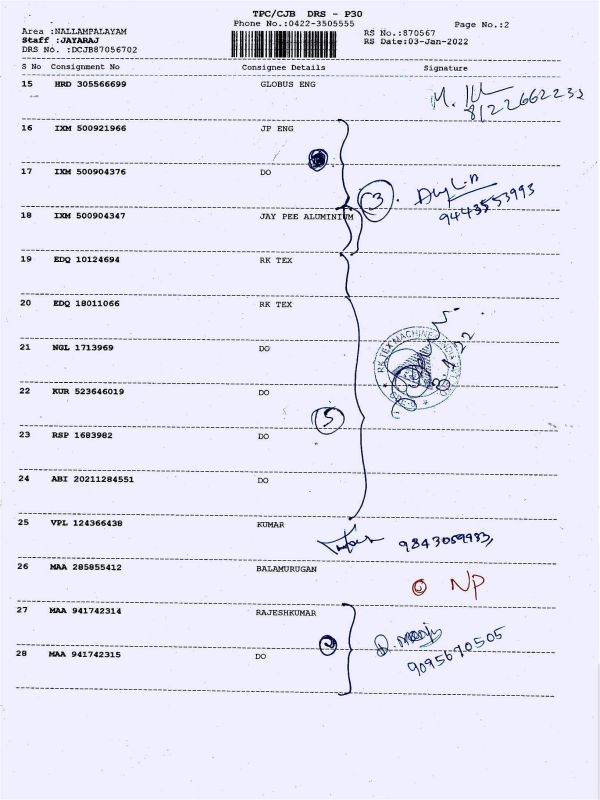 TPC/CJB DRS - P30
Phone No.:0422-3505555
Page No.:2
Area :NALLAMPALAYAM
Staff :JAYARAJ
DRS No. :DCJB87056702
RS No.:870567
RS Date:03-Jan-2022
S No Consignment No Consignee Details Signature
15 HRD 305566699 GLOBUS ENG
8122662232
16 IXM 500921966 JP ENG
17 IXM 500904376 DO
3
9443553993
18 IXM 500904347 JAY PEE ALUMINIUM
19 EDQ 10124694 RK TEX
20 EDQ 18011066 RK TEX
21 NGL 1713969 DO
RK TEX MACHINE
22 KUR 523646019 DO
5
23 RSP 1683982 DO
24 ABI 20211284551 DO
25 VPL 124366438 KUMAR
9843059983
26 MAA 285855412 BALAMURUGAN
NP
27 MAA 941742314 RAJESHKUMAR
28 MAA 941742315 DO
9095670505